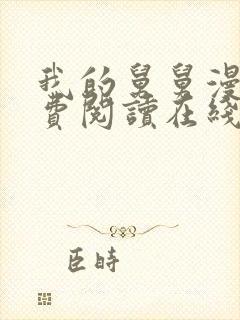 我的舅舅漫
費閱讀在綫
臣時